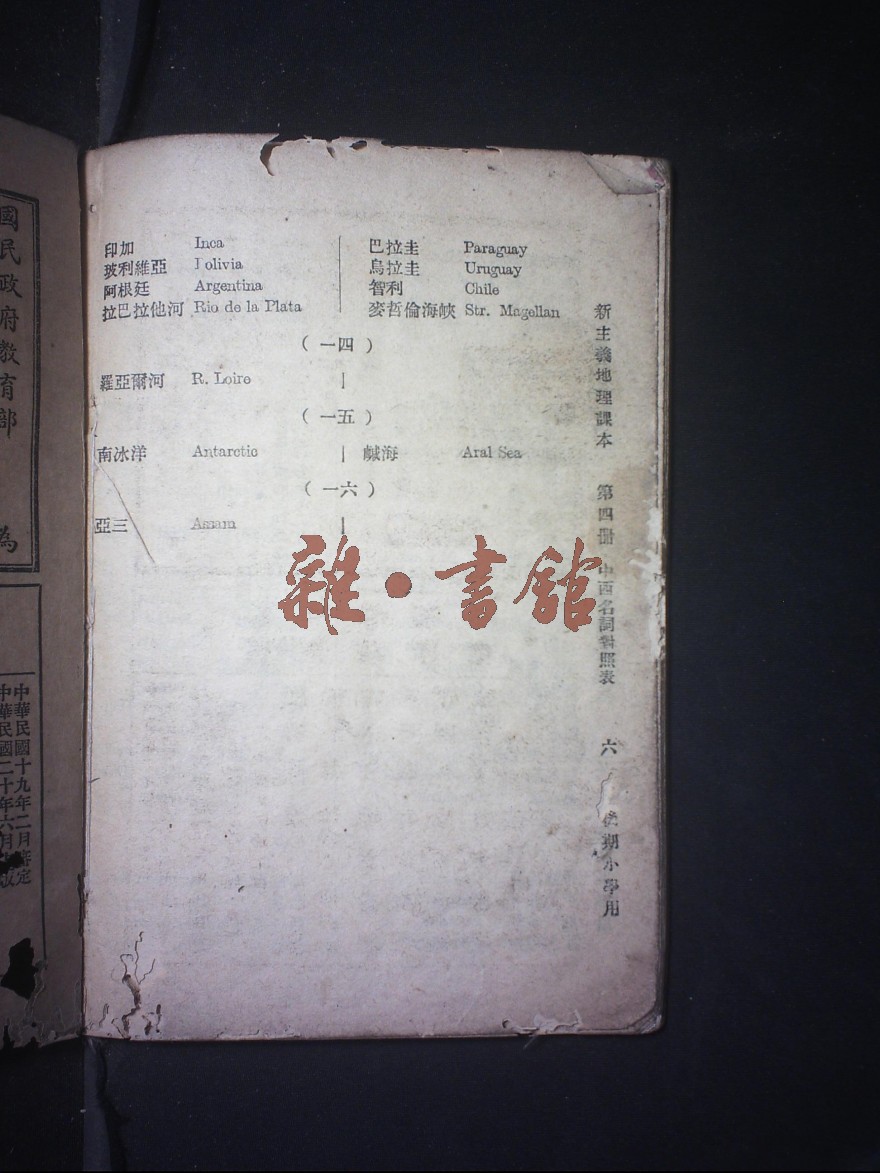 印加 Inca 巴拉圭 Paraguay
玻利維亞 olivia 烏拉圭 Uruguay
阿根廷 Argentina 智利 Chile
拉巴拉他河 Rio de la Plata 麥哲倫海峽 Str. Magellan
（一四）
羅亞爾河 R. Loire
（一五）
南冰洋 Antarctic 鹹海 Aral Sea
（一六）
亞三 Assam
雜·書館
新主義地理課本 第四冊 中西名詞對照表 六 後期小學用
國民政府教育部
為
中華民國十九年二月審定
中華民國二十年六月版